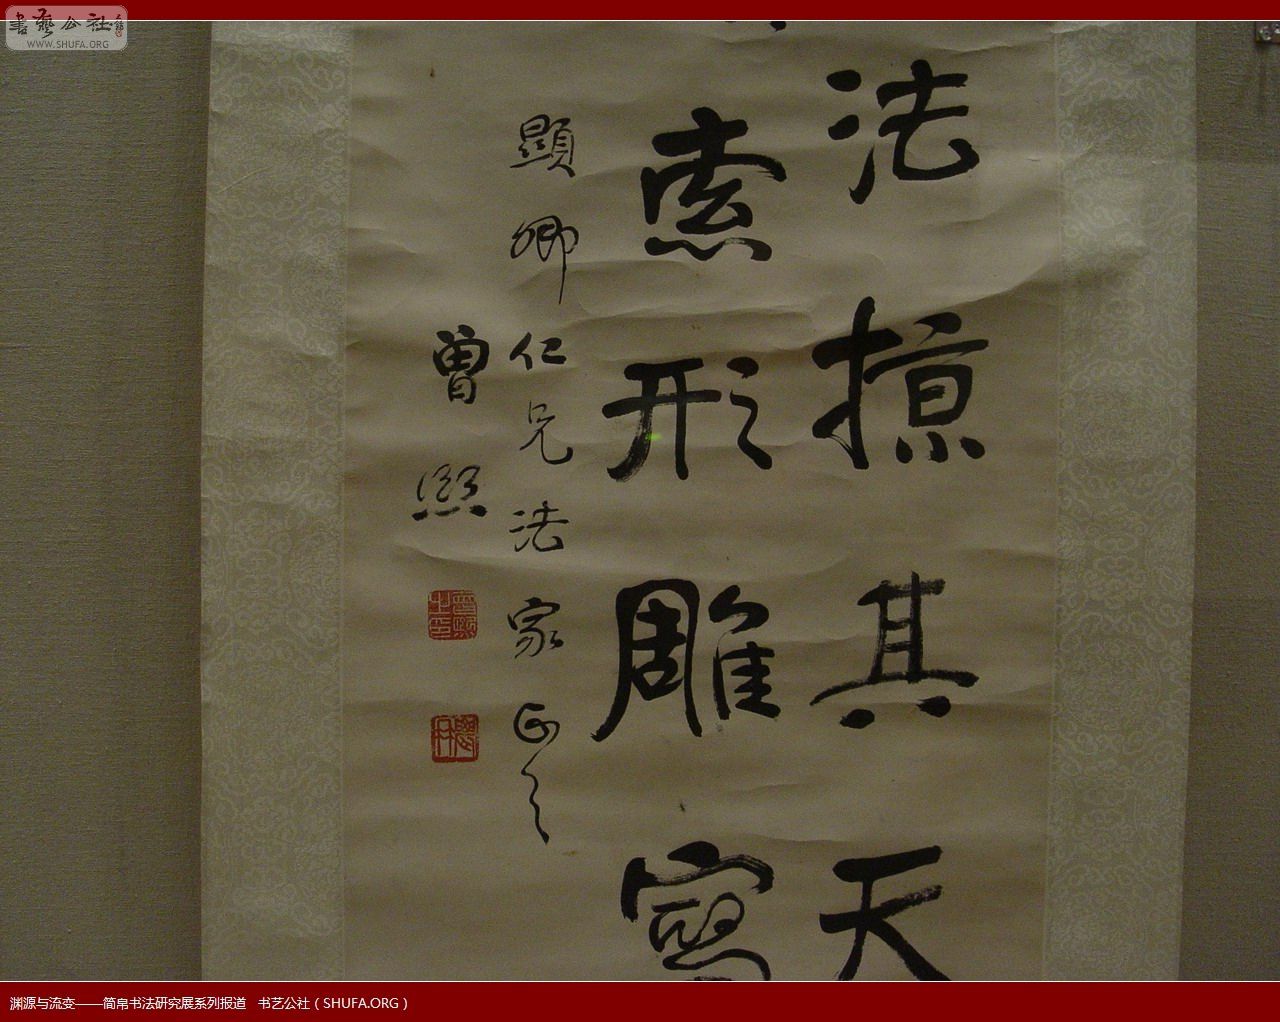 書藝公社
WWW.SHUFA.ORG
法掠其天
索形雕寫
顯卿仁兄法家正之
曾熙
渊源与流变——简帛书法研究展系列报道 书艺公社（SHUFA.ORG）